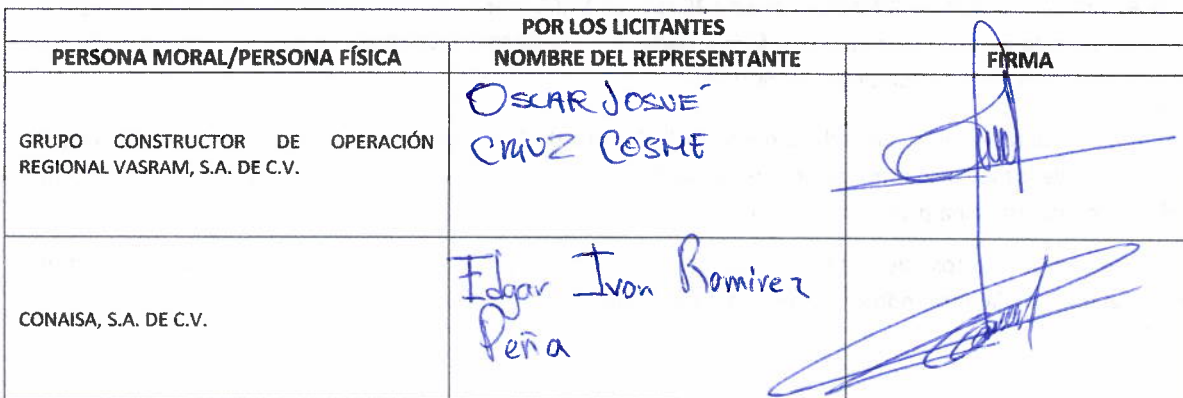 POR LOS LICITANTES
PERSONA MORAL/PERSONA FÍSICA NOMBRE DEL REPRESENTANTE FIRMA
GRUPO CONSTRUCTOR DE OPERACIÓN
REGIONAL VASRAM, S.A. DE C.V.
OSCAR JOSUÉ
CRUZ COSME
CONAISA, S.A. DE C.V.
Edgar Ivon Ramirez
Peña